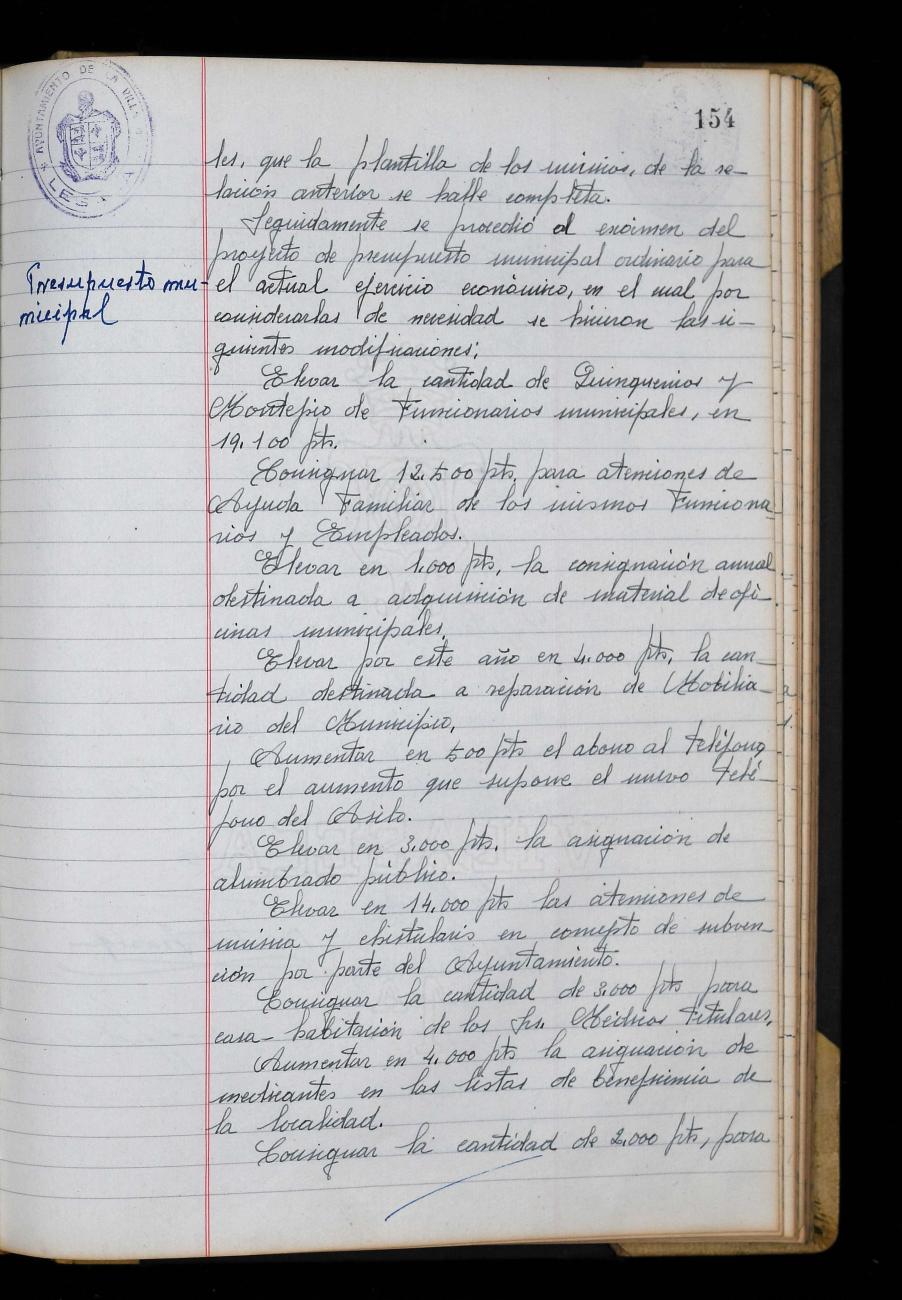 AYUNTAMIENTO DE LA VILLA
LESACA
154
les, que la plantilla de los mismos, de la re-
lación anterior se halle completa.
Seguidamente se procedió al exámen del
proyecto de presupuesto municipal ordinario para
Presupuesto mu-
nicipal
el actual ejercicio económico, en el cual por
considerarlas de necesidad se hicieron las si-
guientes modificaciones:
Elevar la cantidad de Quinquenios y
Montepio de Funcionarios municipales, en
19.100 pts.
Consignar 12.500 pts. para atenciones de
Ayuda Familiar de los mismos Funciona-
rios y Empleados.
Elevar en 1.000 pts, la consignación annual
destinada a adquisición de material de ofi-
cinas municipales.
Elevar por este año en 4.000 pts, la can-
tidad destinada a reparación de Mobilia-
rio del Municipio.
Aumentar en 500 pts el abono al teléfono,
por el aumento que supone el nuevo telé-
fono del Asilo.
Elevar en 3.000 pts. la asignación de
alumbrado público.
Elevar en 14.000 pts las atenciones de
música y chistularis en concepto de subven-
ción por parte del Ayuntamiento.
Consignar la cantidad de 3.000 pts para
casa-habitación de los Srs. Médicos Titulares.
Aumentar en 4.000 pts la asignación de
medicantes en las listas de beneficencia de
la localidad.
Consignar la cantidad de 2.000 pts, para